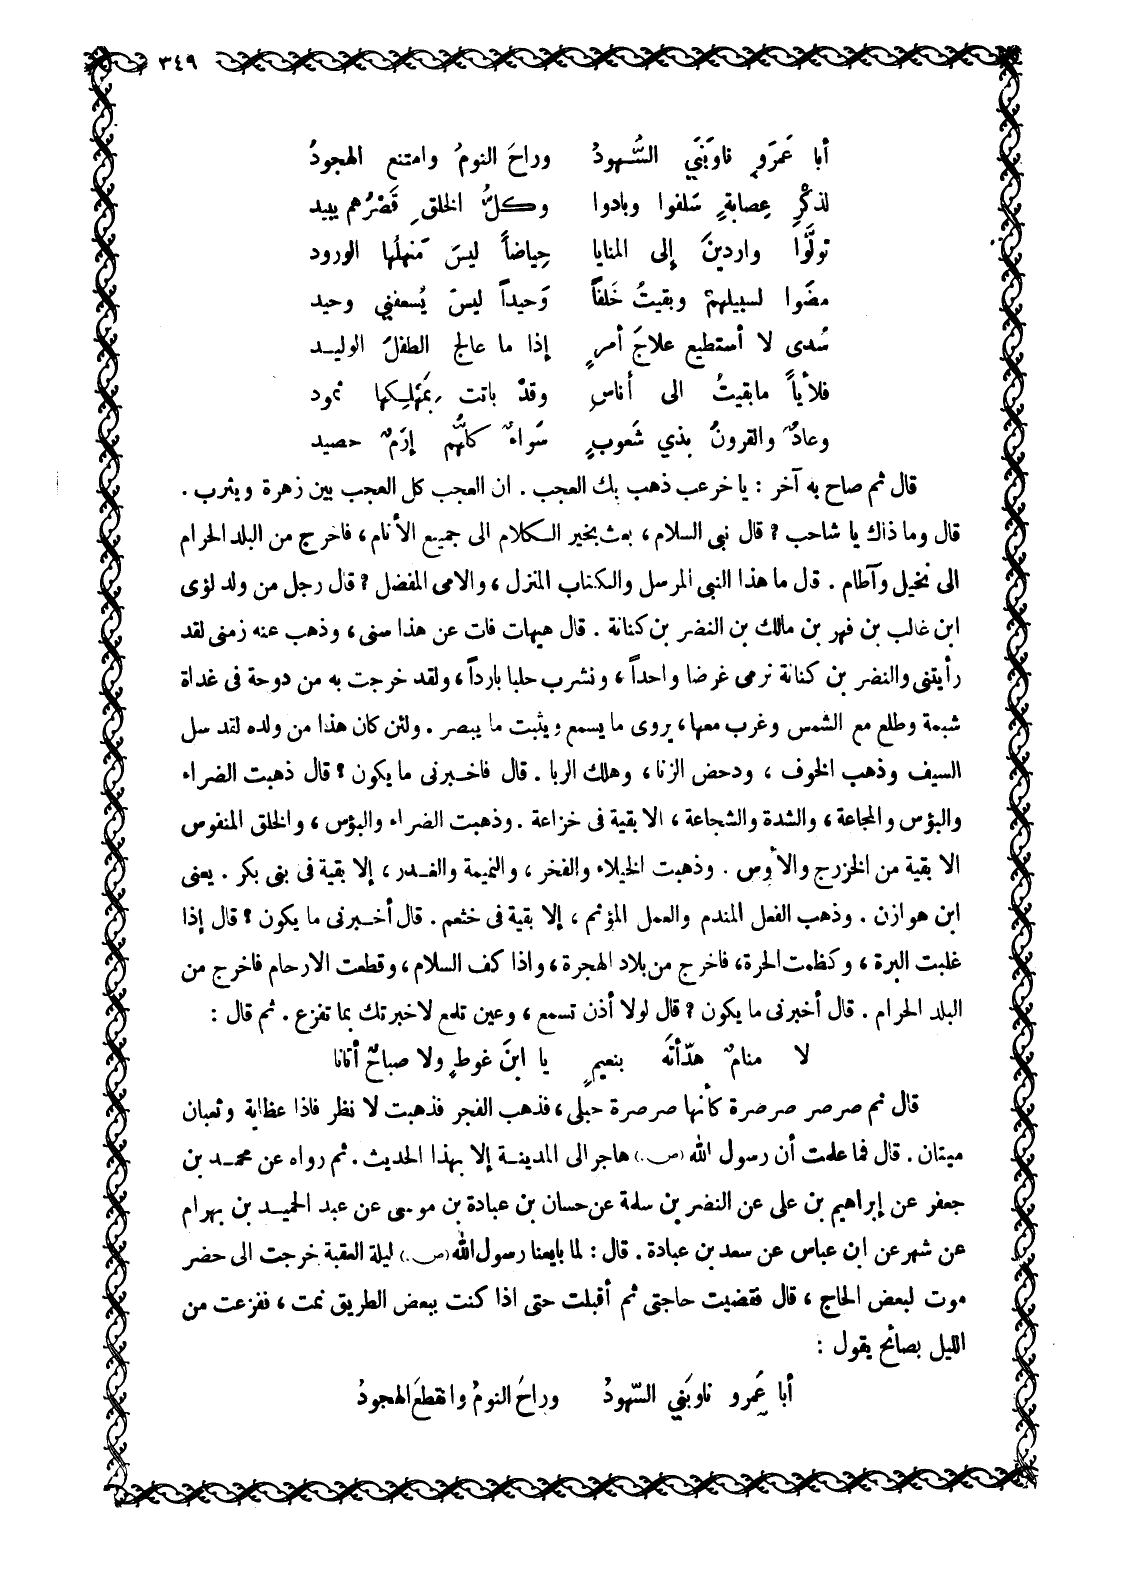 ٣٤٩
أبا عَمرَو ناوَبَنَي السُّهودُ وراحَ النومُ وامتنع الهجودُ
لذكْرِ عِصابةٍ سَلفوا وبادوا وكلُّ الخلقِ قَصْرُهم يبيد
تولَّوا واردينَ إلى المنايا حِياضاً ليسَ مَنهلُها الورود
مضَوا لسبيلهمْ وبقيتُ خَلفاً وَحيداً ليسَ يُسعفني وحيد
سُدى لا أستطيع علاجَ أمرٍ إذا ما عالج الطفلَ الوليد
فلأياً مابقيتُ الى أناسٍ وقدْ باتت بِمَهلِكها ثمود
وعادٌ والقرونُ بذي شَعوبٍ سَواءٌ كلُّهم إرَمٌ حصيد
قال ثم صاح به آخر : يا خرعب ذهب بك العجب . ان العجب كل العجب بين زهرة ويثرب .
قال وما ذاك يا شاحب ? قال نبى السلام ، بعث بخير الكلام الى جميع الأنام ، فاخرج من البلد الحرام
الى نخيل وآطام . قال ما هذا النبى المرسل والكتاب المنزل ، والامى المفضل ? قال رجل من ولد لؤى
ابن غالب بن فهر بن مالك بن النضر بن كنانة . قال هيهات فات عن هذا سنى ، وذهب عنه زمنى لقد
رأيتنى والنضر بن كنانة نرمى غرضا واحداً ، ونشرب حلبا بارداً ، ولقد خرجت به من دوحة فى غداة
شبمة وطلع مع الشمس وغرب معها ، يروى ما يسمع ويثبت ما يبصر . ولئن كان هذا من ولده لقد سل
السيف وذهب الخوف ، ودحض الزنا ، وهلك الربا . قال فاخبرنى ما يكون ? قال ذهبت الضراء
والبؤس والمجاعة ، والشدة والشجاعة ، الا بقية فى خزاعة . وذهبت الضراء والبؤس ، والخلق المنفوس
الا بقية من الخزرج والأوس . وذهبت الخيلاء والفخر ، والنميمة والغدر ، إلا بقية فى بنى بكر . يعنى
ابن هوازن . وذهب الفعل المندم والعمل المؤثم ، إلا بقية فى خثعم . قال أخبرنى ما يكون ? قال إذا
غلبت البرة ، وكظمت الحرة ، فاخرج من بلاد الهجرة ، واذا كف السلام ، وقطعت الارحام فاخرج من
البلد الحرام . قال أخبرنى ما يكون ? قال لولا أذن تسمع ، وعين تلمع لاخبرتك بما تفزع . ثم قال :
لا منامٌ هدّأتَه بنعيمٍ يا ابنَ غوطٍ ولا صباحٌ أتانا
قال ثم صرصر صرصرة كأنها صرصرة حبلى ، فذهب الفجر فذهبت لا نظر فاذا عظاية وثعبان
ميتان . قال فما علمت أن رسول الله (ص.) هاجر الى المدينة إلا بهذا الحديث . ثم رواه عن محمد بن
جعفر عن إبراهيم بن على عن النضر بن سلمة عن حسان بن عبادة بن موسى عن عبد الحميد بن بهرام
عن شهر عن ابن عباس عن سعد بن عبادة . قال : لما بايعنا رسول الله (ص.) ليلة العقبة خرجت الى حضر
موت لبعض الحاج ، قال فقضيت حاجتى ثم أقبلت حتى اذا كنت ببعض الطريق نمت ، ففزعت من
الليل بصائح يقول :
أبا عَمرو ناوبَني السّهودُ وراحَ النومُ وانقطعَ الهجودُ